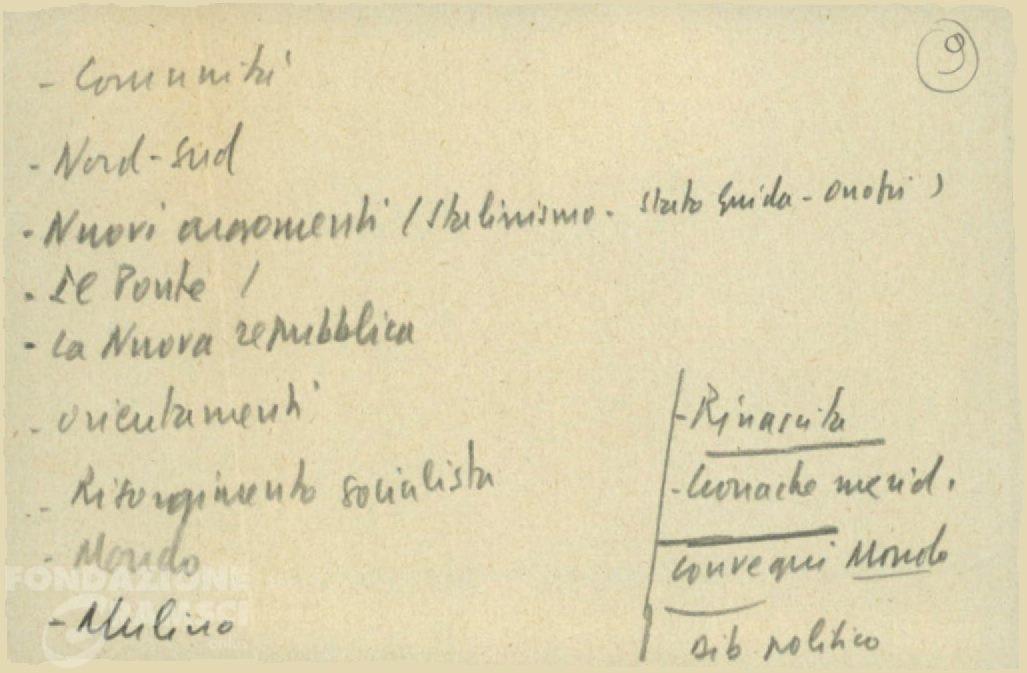 9
- Comunità
- Nord-Sud
- Nuovi argomenti (Stalinismo - Stato guida - )
- Il Ponte /
- La Nuova repubblica
- Orientamenti
- Risorgimento socialista
- Mondo
- Mulino
- Rinascita
- Cronache merid.
Convegni Mondo
politico
FONDAZIONE